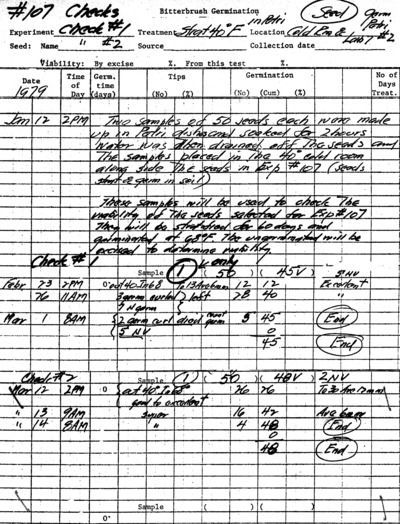 #107 Checks
Bitterbrush Germination
Experiment Check #1 Treatment Strat 40°F in Petri Location Cold Rm & Lab #2
Seed Germ Petri
Seed: Name " #2 Source Collection date
Viability: By excise %. From this test %.
Date Time of Day Germ. time (days) Tips (No) (%) Germination (No) (Cum) (%) No of Days Treat.
1979
Jan 12 2PM Two samples of 50 seeds each were made
up in Petri dishes and soaked for 2 hours
Water was then drained off the seeds and
the samples placed in the 40° cold room
along side the seeds in Exp #107 (seeds
strat & germ in soil)
These samples will be used to check the
viability of the seeds selected for Exp #107
They will be stratified for 60 days and
germinated at 68°F. The ungerminated will be
excised to determine viability.
Check #1
Sample 1 ( 50 )( 45V ) 5NV
Febr 23 2PM 0° out 40 12 12 Excellent
26 11AM 3 germ curled lost 28 40 "
7 N germ
Mar 1 8AM 2 germ curl died count germ 5 45 End
5 NV 0
45 End
Check #2
Sample 1 ( 50 )( 48V ) 2NV
Mar 12 2PM 0 out 40 26 26
good to excellent
" 13 9AM Super 16 42
" 14 8AM " 4 48 End
0
48 End
Sample ( )( )
0°